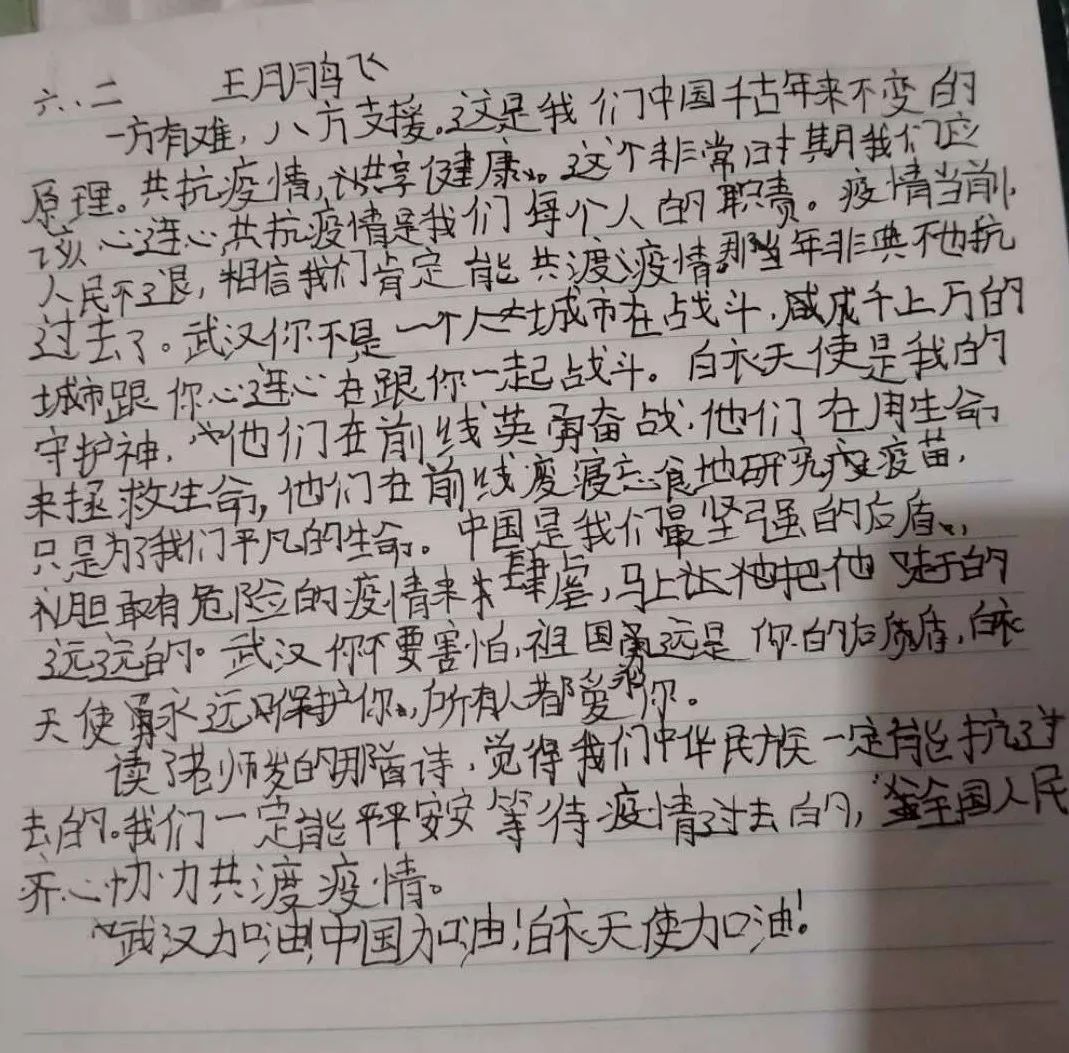 六.二 王月鹏飞
一方有难，八方支援。这是我们中国千古年来不变的
原理。共抗疫情，共享健康。这个非常时期我们应
该心连心，共抗疫情是我们每个人的职责。疫情当前，
人民不退，相信我们肯定能共渡疫情。那当年非典不也抗
过去了。武汉你不是一个人城市在战斗，成千上万的
城市跟你心连心在跟你一起战斗。白衣天使是我的
守护神，他们在前线英勇奋战，他们在用生命
来拯救生命，他们在前线废寝忘食地研究疫苗，
只是为了我们平凡的生命。中国是我们最坚强的后盾，
胆敢有危险的疫情来肆虐，马上让他把他赶的
远远的。武汉你不要害怕，祖国永远是你的后盾，白衣
天使永远保护你，所有人都爱你。
读了老师发的那首诗，觉得我们中华民族一定能抗过
去的。我们一定能平平安安等待疫情过去的，全国人民
齐心协力共渡疫情。
武汉加油！中国加油！白衣天使加油！